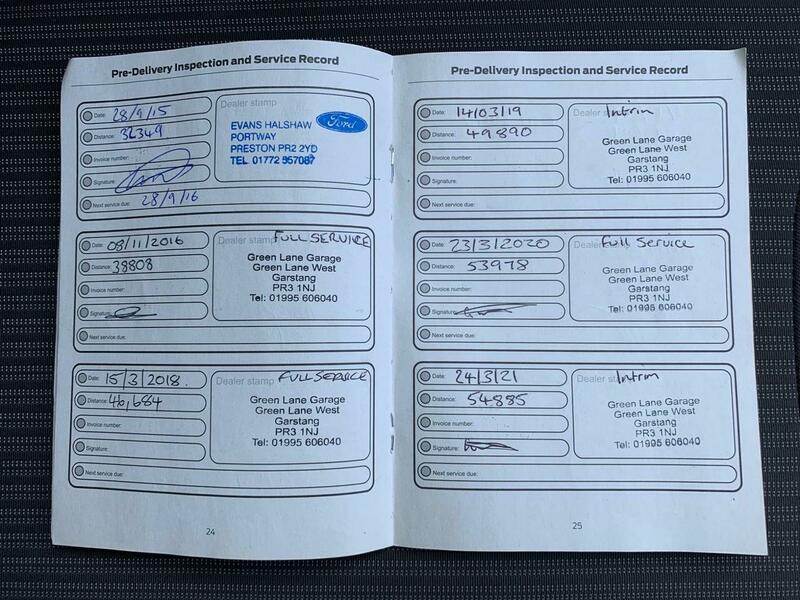 Pre-Delivery Inspection and Service Record
Date: 28/9/15
Distance: 32349
Invoice number:
Signature:
Next service due: 28/9/16
Dealer stamp
Ford
EVANS HALSHAW
PORTWAY
PRESTON PR2 2YD
TEL 01772 557087
Date: 08/11/2016
Distance: 38808
Invoice number:
Signature:
Next service due:
Dealer stamp FULL SERVICE
Green Lane Garage
Green Lane West
Garstang
PR3 1NJ
Tel: 01995 606040
Date: 15/3/2018.
Distance: 46,684
Invoice number:
Signature:
Next service due:
Dealer stamp FULL SERVICE
Green Lane Garage
Green Lane West
Garstang
PR3 1NJ
Tel: 01995 606040
24
Pre-Delivery Inspection and Service Record
Date: 14/03/19
Distance: 49890
Invoice number:
Signature:
Next service due:
Dealer Intrim
Green Lane Garage
Green Lane West
Garstang
PR3 1NJ
Tel: 01995 606040
Date: 23/3/2020
Distance: 53978
Invoice number:
Signature:
Next service due:
Dealer Full Service
Green Lane Garage
Green Lane West
Garstang
PR3 1NJ
Tel: 01995 606040
Date: 24/3/21
Distance: 54885
Invoice number:
Signature:
Next service due:
Dealer Intrim
Green Lane Garage
Green Lane West
Garstang
PR3 1NJ
Tel: 01995 606040
25